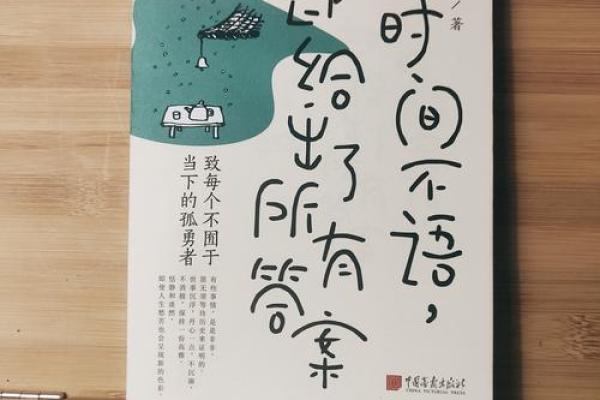 ／著
时间不语，
却给出了
所有答案
致每个不囿于
当下的孤勇者
有些事情，是是非非，
是无须等待历史来证明的。
世事沉浮，丹心一点，不沉沦，
不消极，保持一份高雅，
恬静和淡然，
即使人生愁苦也会呈现新的色彩。
中国画报出版社
CHINA PICTORIAL PRESS